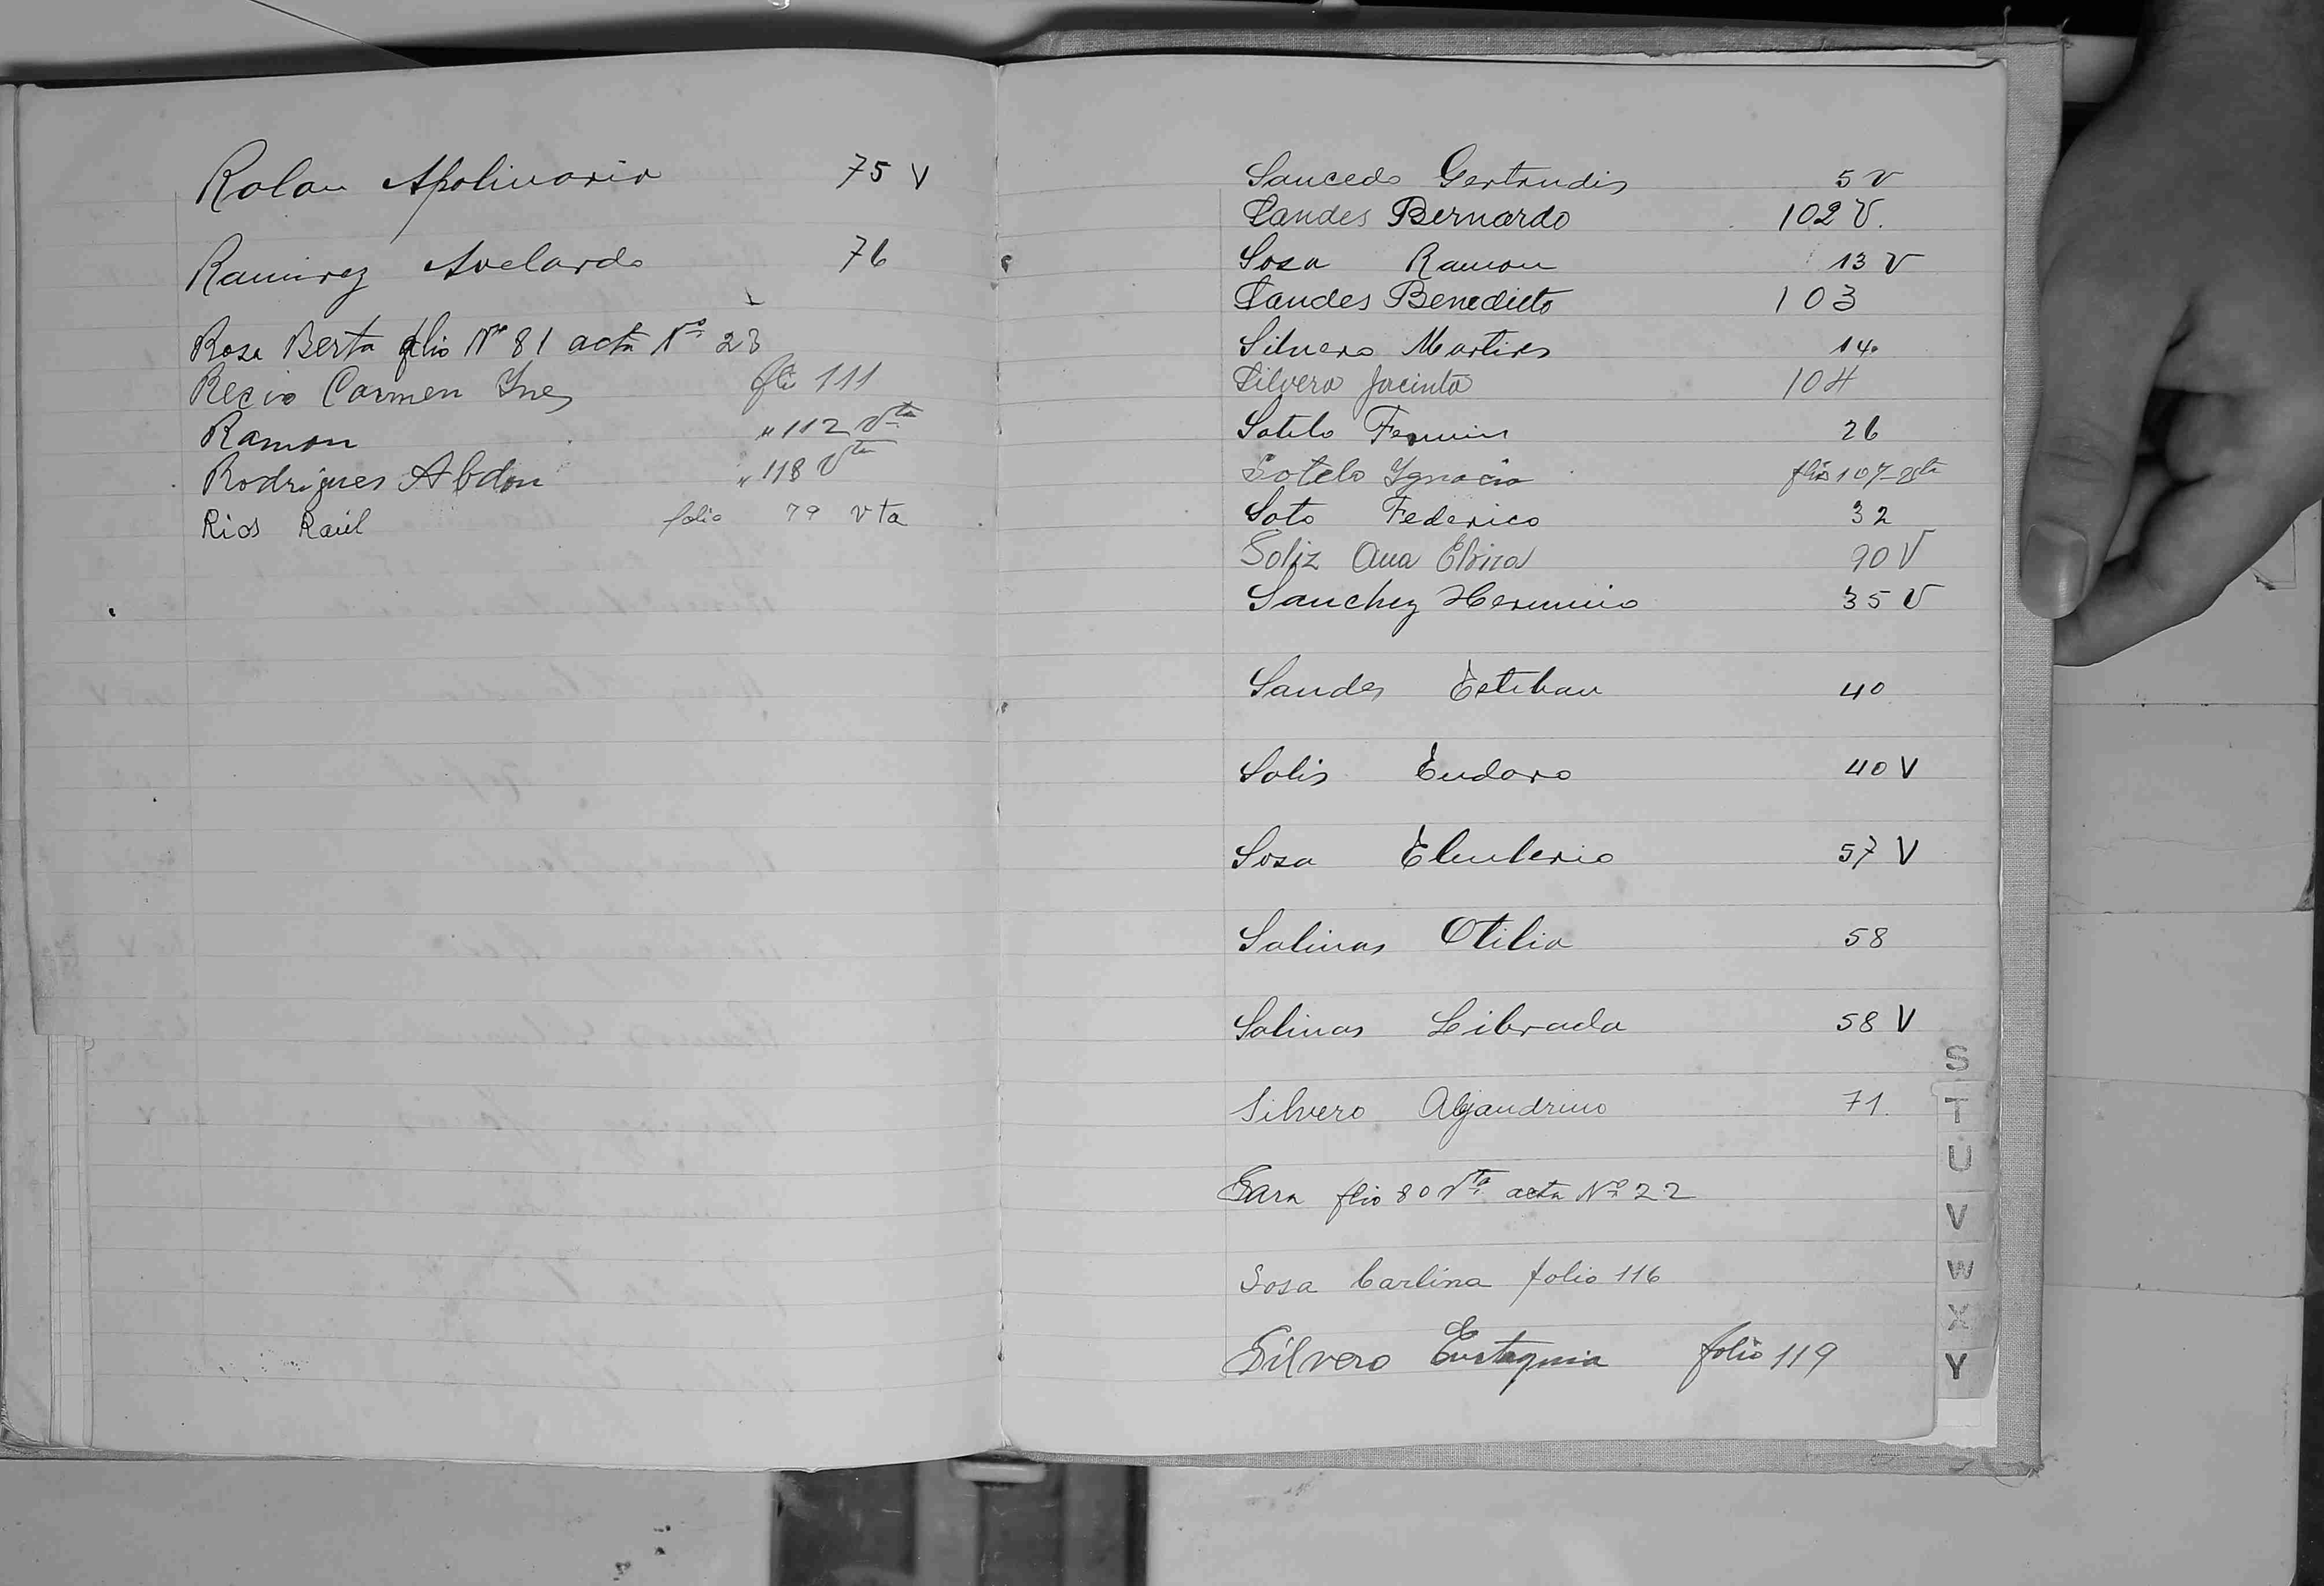 Rolon Apolinario 75 V
Ramirez Avelardo 76
Rosa Berta flio Nº 81 acta Nº 23
Recio Carmen Ines flio 111
Ramon " 112 Vta
Rodrigues Abdon " 118 Vta
Rios Raúl folio 79 vta
Saucedo Gertrudis 5 V
Sandes Bernardo 102 V.
Sosa Ramon 13 V
Sandes Benedicto 103
Silvero Martires 14.
Silvera Jacinta 104
Sotelo Fermin 26
Sotelo Ygnacio flio 107 - vta
Soto Federico 32
Soliz Ana 90 V
Sanchez Herminio 35 V
Sandes Esteban 40
Solis Eudoro 40 V
Sosa Eleuterio 57 V
Salinas Otilia 58
Salinas Librada 58 V
Silvero Alejandrino 71.
Sara flio 80 Vta acta Nº 22
Sosa Carlina folio 116
Silvero Eustaquia folio 119
S
T
U
V
W
X
Y